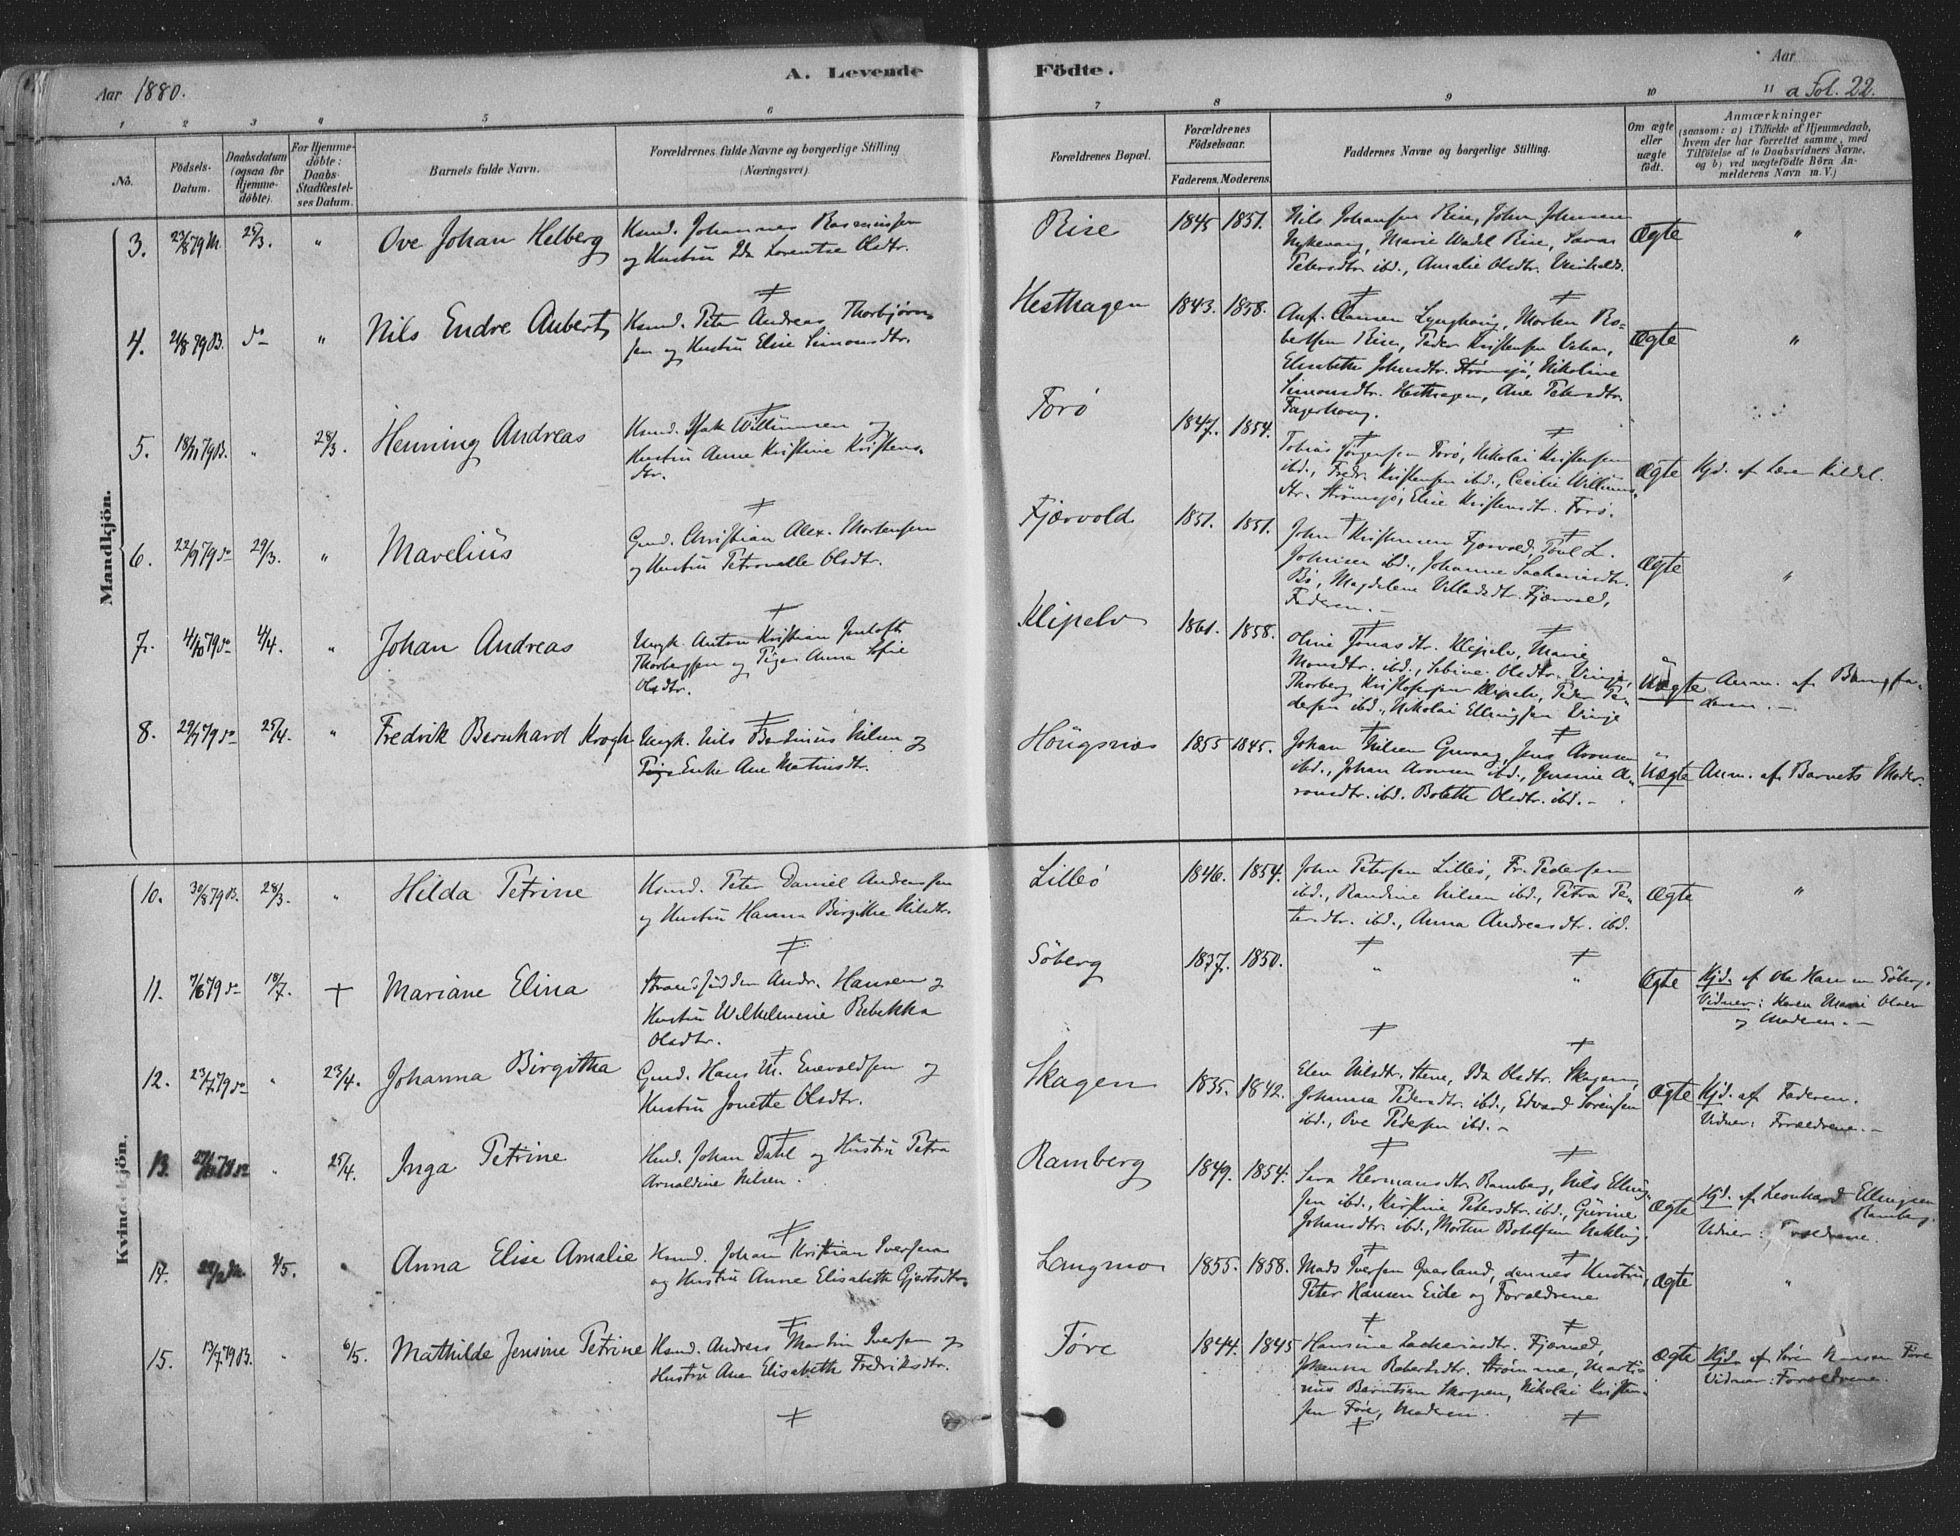 Aar 1880.
A. Levende Födte.
Aar
a Fol. 22.
1 2 3 4 5 6 7 8 9 10 11
No.
Födsels-Datum.
Daabsdatum (ogsaa for Hjemmedöbte).
For Hjemmedöbte: Daabs-Stadfæstelses Datum.
Barnets fulde Navn.
Forældrenes fulde Navne og borgerlige Stilling (Næringsvei).
Forældrenes Bopæl.
Forældrenes Födselsaar.
Faderens. Moderens.
Faddernes Navne og borgerlige Stilling.
Om ægte eller uægte födt.
Anmærkninger (saasom: a) i Tilfælde af Hjemmedaab, hvem der har forrettet samme, med Tilföielse af to Daabsvidners Navne, og b) ved uægtefödte Börn Anmelderens Navn m. V.)
Mandkjön.
3. 25/3. " Ove Johan Helberg
Ksmd. Johannes Rasmussen
og Hustru Ida Lorentse Olsdtr.
Rise 1845 1851.
Nils Johansen Rise, John Johnsen
Nykvaag, Marie Wadel Rise,
Petersdtr. ibd., Amalie Olsdtr.
Ægte "
4. 21/8 79 B. do " Nils Endre Auberts
Ksmd. Peter Andreas Thorbjørn-
sen og Hustru Elise Simonsdtr.
Hesthagen 1843. 1858.
Morten Ro-
bertsen Rise, Peder Kristensen
Elisabeth Johnsdtr. Strømsjø, Nikoline
Simonsdtr. Hesthagen, Ane Petersdtr.
Fagerhaug.
Ægte "
5. 18/11 79 B. " 28/3. Henning Andreas
Ksmd. Isak Willumsen og
Hustru Anne Kristine Kristens-
dtr.
Forö 1847. 1854.
Tobias Jörgensen Forö, Nikolai Kristensen
ibd., Fredr. Kristensen ibd., Cecilie Willums-
dtr. Strömsjö, Elise Kristensdtr. Forö.
Ægte Hjd. af
6. 22/9 79 do 29/3. " Marelius
Gmd. Christian Alex. Mortensen
og Hustru Petronelle Olsdtr.
Fjærvold 1851. 1851.
John Kristensen Fjærvold, Poul L.
Johnsen ibd., Johanne Sachariasdtr.
Bö, Magdelene Villadsdtr. Fjærvold,
Faderen.
Ægte "
7. 4/10 79 do 4/4. " Johan Andreas
Ungk. Anton Kristian Jentoft
Thorbergsen og Pige Anna Sofie
Olsdtr.
Klipelv 1861. 1858.
Oline Jonasdtr. Klipelv, Marie
Monsdtr. ibd., Sebine Olsdtr. Vinje,
Thorberg Kristofersen Klipelv, Peder Pe-
dersen ibd., Nikolai Ellingsen Vinje
Uægte Anm. af Barnefa-
deren.
8. 25/4. " Fredrik Bernhard Krogh
Ungk. Nils Berdinus Nilsen og
Pige Enke Ane Matiusdtr.
Hougsnes 1855 1845.
Johan Nilsen Guvaag, Jens Aronsen
ibd., Johan Aronsen ibd., A-
ronsdtr. ibd. Bolette Olsdtr. ibd.
Uægte Anm. af Barnets Moder.
Kvindekjön.
10. 30/8 79 B. 28/3. " Hilda Petrine
Ksmd. Peter Daniel Andreassen
og Hustru Hanna Birgitte Nilsdtr.
Lillö 1846. 1854.
John Petersen Lillö, Fr. Pedersen
ibd., Randine Nilsen ibd., Petra Pe-
tersdtr. ibd., Anna Andreasdtr. ibd.
Ægte "
11. 7/6 79 do 18/7. † Mariane Elina
Strandsidder Andr. Hansen og
Hustru Wilhelmine Rebekka
Olsdtr.
Söberg 1837. 1850. " "
Ægte Hjd. af Ole Hansen Söberg.
Vidner: Karen Marie Olsen
og Moderen.
12. 23/7 79 do " 23/4. Johanna Birgitha
Gmd. Hans M. Enevoldsen og
Hustru Jonette Olsdtr.
Skagen 1835. 1842.
Elen Nilsdtr. Stene, Ida Olsdtr. Skagen,
Johanna Pedersdtr. ibd., Edvard Sörensen
ibd., Ove Pedersen ibd.
Ægte Hjd. af Faderen.
Vidner: Forældrene.
13. " 25/4. Inga Petrine
Ksmd. Johan Dahl og Hustru Petra
Arnoldine Nilsen.
Ramberg 1849. 1854.
Sara Hermansdtr. Ramberg, Nils Elling-
sen ibd., Kirstine Petersdtr. ibd., Gurine
Johansdtr. ibd., Morten Botolfsen
Ægte Hjd. af Leonhard Ellingsen
Ramberg.
Vidner: Forældrene.
14. Anna Elise Amalie
Ksmd. Johan Kristian Iversen
og Hustru Anne Elisabeth Gjertsdtr.
Langmo 1855. 1858.
Mads Iversen Gaasland, dennes Hustru,
Peter Hansen Eide og Forældrene
Ægte "
15. 13/7 79 B. " 6/5. Mathilde Jensine Petrine
Ksmd. Andreas Martin Iversen og
Hustru Ane Elisabeth Fredriksdtr.
Före 1844. 1845
Hansine Zachariasdtr. Fjærvold,
Johanna Robertsdtr. Strömme, Marti-
nus Berntsen Skorpen, Nikolai Kristen-
sen Före, Moderen.
Ægte Hjd. af Sören Hansen Före
Vidner: Forældrene.